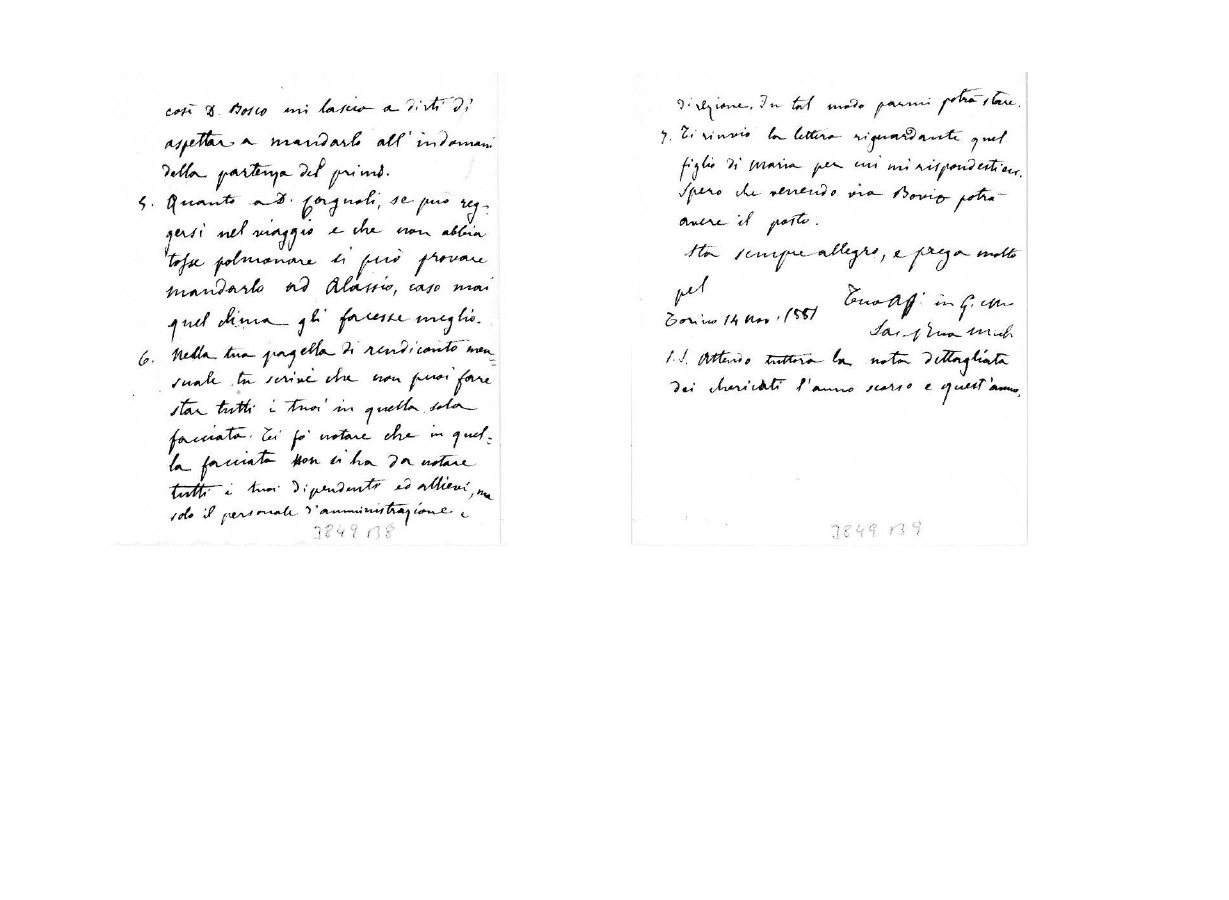 così D. Bosco mi lascia a dirti di
aspettar a mandarlo all'indomani
della partenza del primo.
5. Quanto a D. Cagnoli, se può reg-
gersi nel viaggio e che non abbia
tosse polmonare si può provare
mandarlo ad Alassio, caso mai
quel clima gli facesse meglio.
6. Nella tua pagella di rendiconto men=
suale tu scrivi che non puoi fare
star tutti i tuoi in quella sola
facciata. Ti fo notare che in quel=
la facciata non si ha da notare
tutti i tuoi dipendenti ed allievi, ma
solo il personale d'amministrazione e
3849 B8
direzione. In tal modo parmi potrà stare.
7. Ti rinvio la lettera riguardante quel
figlio di Maria per cui mi rispondesti
Spero che venendo via Bovio potrà
avere il posto.
Sta sempre allegro, e prega molto
pel
Tuo Aff. in G. e M.
Torino 14 nov. 1881
Sac.
P.S. Attendo tuttora la nota dettagliata
dei chericati l'anno scorso e quest'anno.
3849 B9